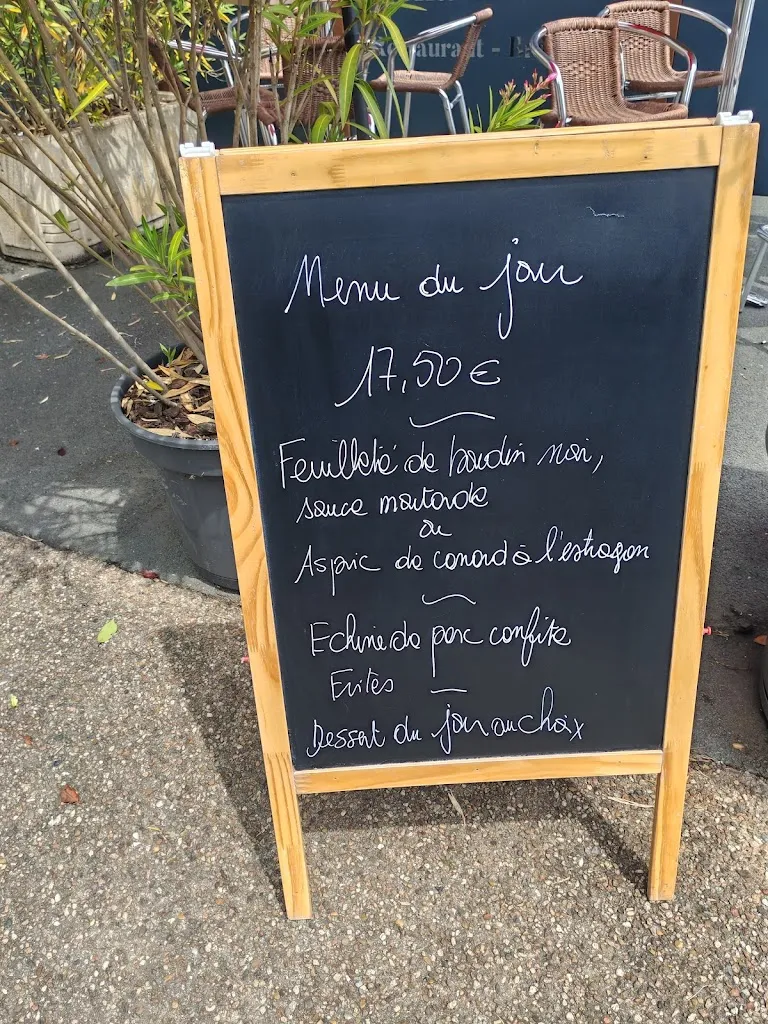 Restaurant -
Menu du jour
17,50€
Feuilleté de boudin noir,
sauce moutarde
ou
Aspic de canard à l'estragon
Echine de porc confite
Frites
Dessert du jour au choix